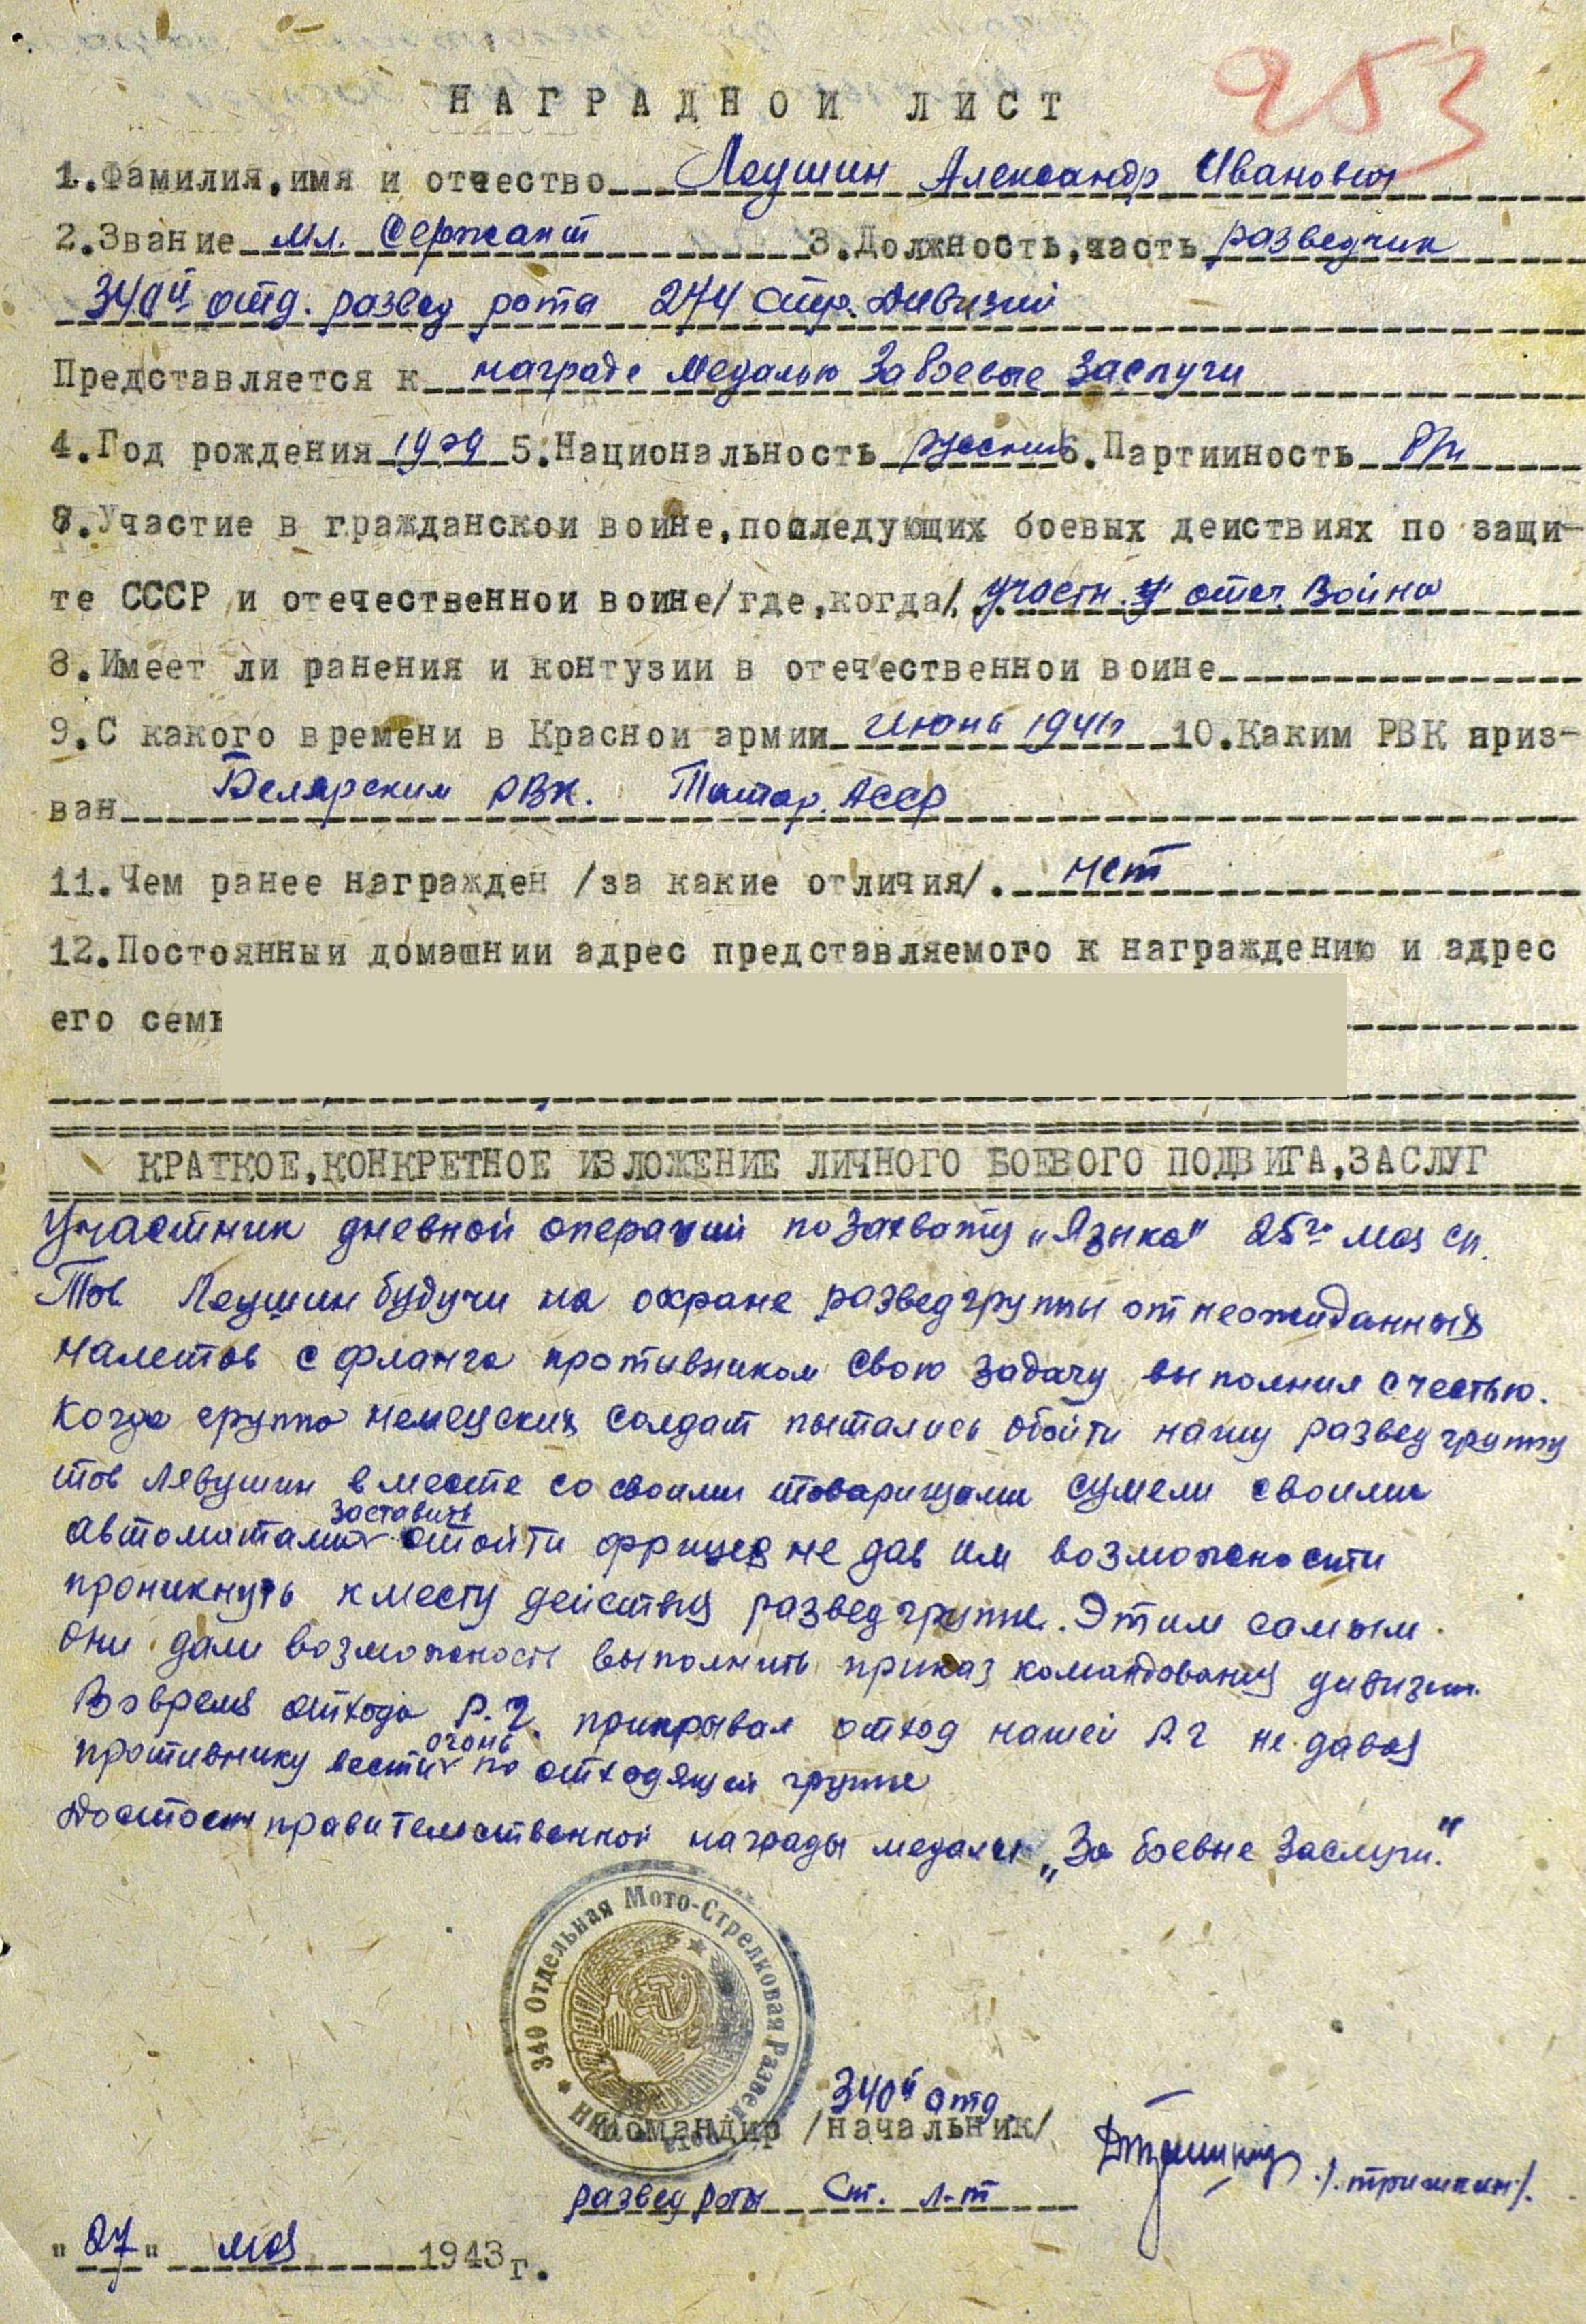 253
НАГРАДНОИ ЛИСТ
1.Фамилия,имя и отчество Леушин Александр Иванович
2.Звание мл. Сержант 3.Должность,часть разведчик
340й отд. развед рота 274 стр. Дивизии
Представляется к награде Медалью За боевые Заслуги
4.Год рождения 5.Национальность русский 6.Партииность
8.Участие в гражданскои воине,последующих боевых деиствиях по защи-
те СССР и отечественнои воине/где,когда/. участн. отеч. Войны
8.Имеет ли ранения и контузии в отечественнои воине
9.С какого времени в Краснои армии Июнь 1941г 10.Каким РВК приз-
ван Белярским РВК. Татар. АССР
11.Чем ранее награжден /за какие отличия/. нет
12.Постоянныи домашнии адрес представляемого к награждению и адрес
его семь
КРАТКОЕ,КОНКРЕТНОЕ ИЗЛОЖЕНИЕ ЛИЧНОГО БОЕВОГО ПОДВИГА,ЗАСЛУГ
Участник дневной операции по захвату „Языка" 25го мая
Тов Леушин будучи на охране развед группы от неожиданных
налетов с фланга противником свою задачу выполнил с честью.
Когда группа немецских солдат пытались обойти нашу развед группу
тов Лявушин вместе со своими товарищами сумели своими
автоматами заставить отойти фрицев не дав им возможности
проникнуть к месту действия развед группе. Этим самым
они дали возможность выполнить приказ командования дивизии.
Во время отхода Р.Г. прикрывал отход нашей Р.Г не давая
противнику вести огонь по отходящей группе
Достоен правительственной награды медали „За боевые Заслуги."
340 Отдельная Мото-Стрелковая Развед рота НКО
340й отд
Командир /начальник/
развед роты Ст. л-т /.тришкин./
"27" мая 1943г.